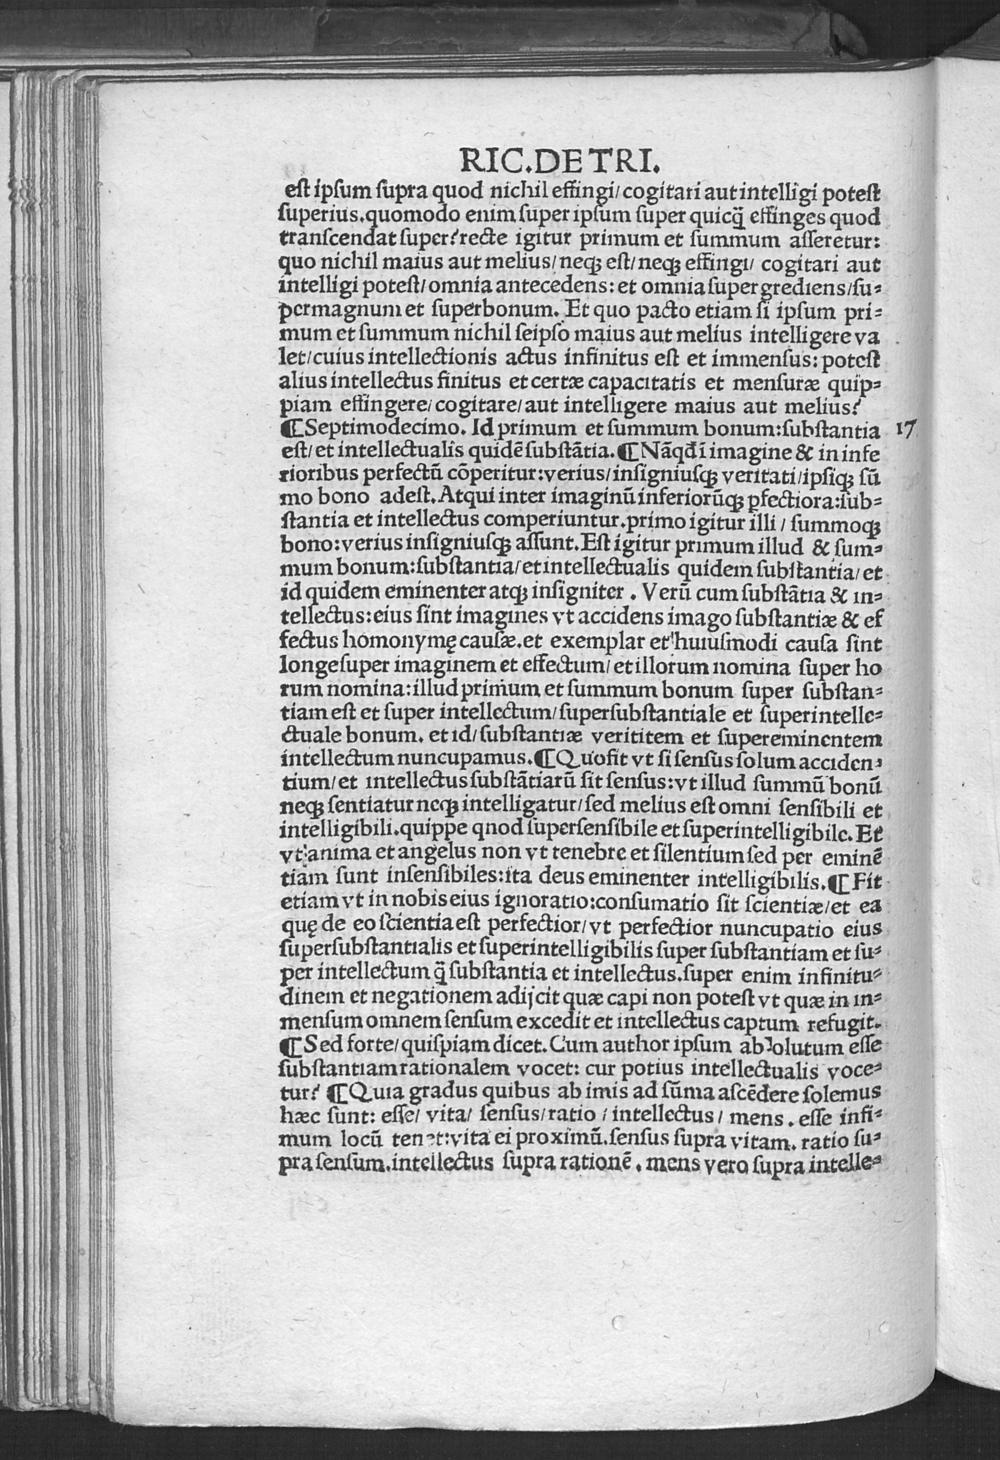 RIC.DE TRI.
est ipſum ſupra quod nichil effingi/cogitari aut intelligi poteſt
ſuperius.quomodo enim ſuper ipſum ſuper quicq̃ effinges quod
tranſcendat ſuper?recte igitur primum et ſummum aſſeretur:
quo nichil maius aut melius/neqꝫ eſt/neqꝫ effingi/ cogitari aut
intelligi poteſt/omnia antecedens: et omnia ſupergrediens/ſu⸗
permagnum et ſuperbonum. Et quo pacto etiam ſi ipſum pri⸗
mum et ſummum nichil ſeipſo maius aut melius intelligere va
let/cuius intellectionis actus infinitus eſt et immenſus: poteſt
alius intellectus finitus et certæ capacitatis et menſuræ quip⸗
piam effingere/cogitare/aut intelligere maius aut melius?
¶Septimodecimo. Id primum et ſummum bonum:ſubſtantia 17
eſt/et intellectualis quidē ſubſtātia.¶Nāqđ ī imagine & in infe
rioribus perfectū cōperitur:verius/inſigniuſqꝫ veritati/ipſiqꝫ ſū
mo bono adeſt.Atqui inter imaginū inferiorūqꝫ ꝑfectiora:ſub⸗
ſtantia et intellectus comperiuntur.primo igitur illi / ſummoqꝫ
bono:verius inſigniuſqꝫ aſſunt.Eſt igitur primum illud & ſum⸗
mum bonum:ſubſtantia/et intellectualis quidem ſubſtantia/et
id quidem eminenter atqꝫ inſigniter . Verū cum ſubſtātia & in⸗
tellectus:eius ſint imagines vt accidens imago ſubſtantiæ & ef
fectus homonymę cauſæ.et exemplar et huiuſmodi cauſa ſint
longe ſuper imaginem et effectum/ et illorum nomina ſuper ho
rum nomina:illud primum et ſummum bonum ſuper ſubſtan⸗
tiam eſt et ſuper intellectum/ſuperſubſtantiale et ſuperintelle⸗
ctuale bonum. et id/ſubſtantiæ verititem et ſupereminentem
intellectum nuncupamus.¶Quo fit vt ſi ſenſus ſolum acciden⸗
tium/et intellectus ſubſtātiarū ſit ſenſus:vt illud ſummū bonū
neqꝫ ſentiatur neqꝫ intelligatur/ſed melius eſt omni ſenſibili et
intelligibili.quippe qnod ſuperſenſibile et ſuperintelligibile. Et
vt anima et angelus non vt tenebre et ſilentium ſed per eminē
tiam ſunt inſenſibiles:ita deus eminenter intelligibilis.¶Fit
etiam vt in nobis eius ignoratio:conſumatio ſit ſcientiæ/et ea
quę de eo ſcientia eſt perfectior/vt perfectior nuncupatio eius
ſuperſubſtantialis et ſuperintelligibilis ſuper ſubſtantiam et ſu⸗
per intellectum q̃ ſubſtantia et intellectus.ſuper enim infinitu⸗
dinem et negationem adijcit quæ capi non poteſt vt quæ in in⸗
menſum omnem ſenſum excedit et intellectus captum refugit.
¶Sed forte/quiſpiam dicet.Cum author ipſum abſolutum eſſe
ſubſtantiam rationalem vocet: cur potius intellectualis voce⸗
tur? ¶Quia gradus quibus ab imis ad ſūma aſcēdere ſolemus
hæc ſunt: eſſe/ vita/ ſenſus/ratio / intellectus/ mens . eſſe infi⸗
mum locū tenet:vita ei proximū.ſenſus ſupra vitam. ratio ſu⸗
pra ſenſum.intellectus ſupra rationē . mens vero ſupra intelle⸗